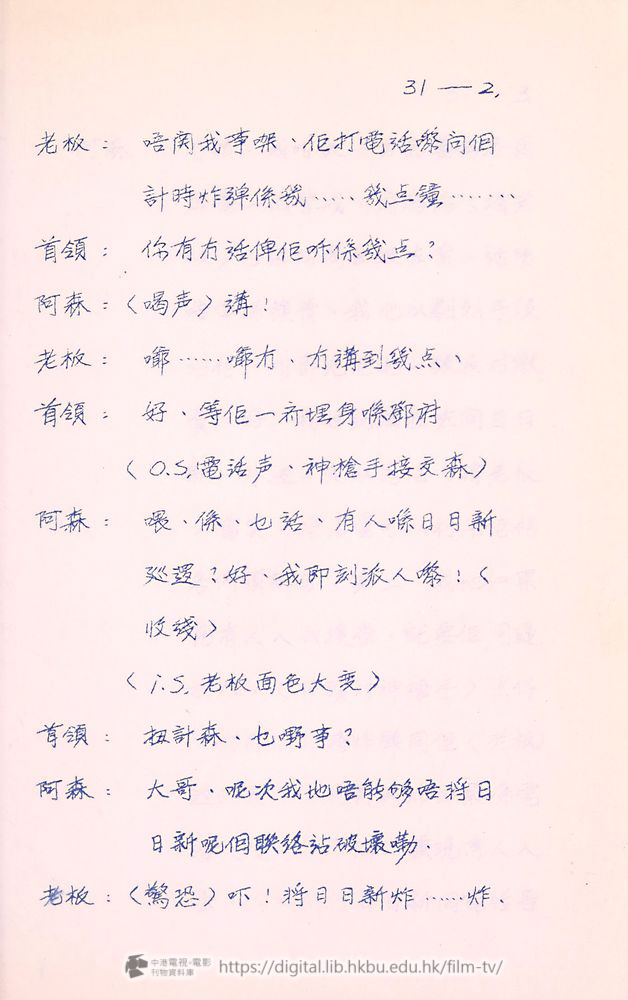 31 — 2,
老板： 唔関我事㗎、佢打電話嚟问個
計時炸弹係幾……幾点鐘………
首領： 你有冇話俾佢听係幾点？
阿森：（喝声）講！
老板： 嗰……嗰冇、冇講到幾点、
首領： 好、等佢一齐埋身喺鄧府
（O.S,電話声、神槍手接交森）
阿森： 喂、係、乜話、有人喺日日新
廵邏？好、我即刻派人嚟！（
收綫）
（i.S, 老板面色大变）
首領： 扭計森、乜嘢事？
阿森： 大哥、呢次我地唔能够唔将日
日新呢個聯络站破壞嘞.
老板：（驚恐）吓！将日日新炸……炸、
中港電視·電影
刊物資料庫
https://digital.lib.hkbu.edu.hk/film-tv/